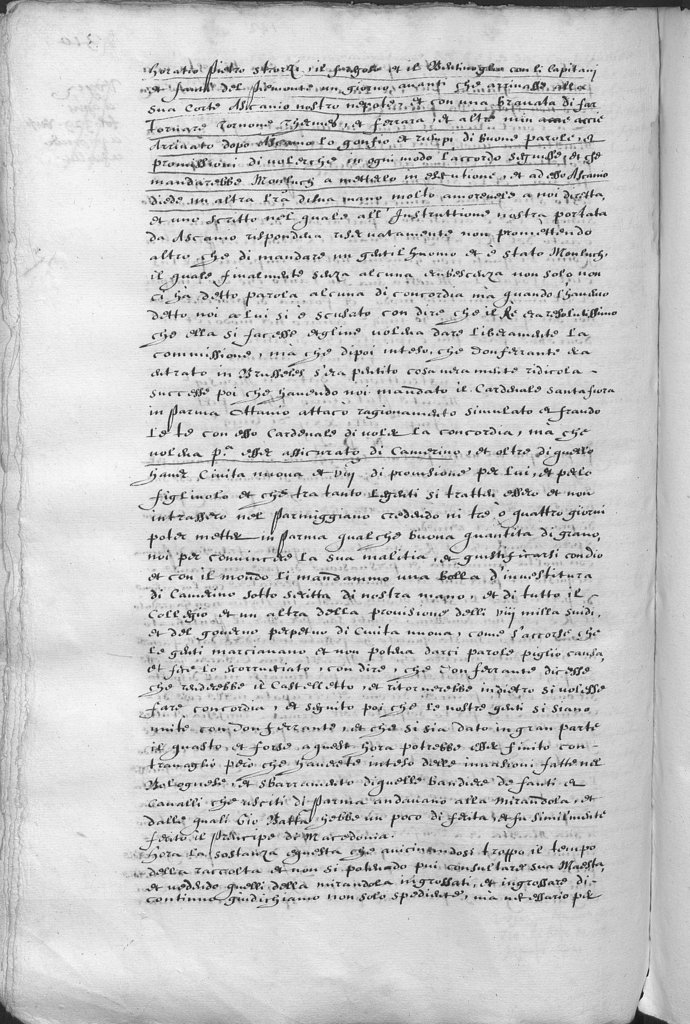 Horatio Pietro Strozzi, il fargola et il Bentivoglia con li Capitani
et fanti del Piemonte un giorno avanti che arrivasse alla
sua Corte Ascanio nostro nepote, et con una bravata di far
tornare Tornone Themes, et ferrara, et altre min
Arrivato dopo Ascanio lo gonfio et di buone parole, et
promissioni di volerche in ogni modo l'accordo seguisse, et che
mandarebbe Monluch a metterlo in essecutione, et ad esso Ascanio
diede un altra lra di sua mano molto amorevele a noi diretta,
et uno scritto nel quale all' Instruttione nostra portata
da Ascanio rispondeva riservatamente non promettendo
altro, che di mandare un gentilhuomo et è stato Monluch,
il quale finalmente senza alcuna erubescenza non solo non
ci ha detto parola alcuna di concordia ma quando l'havemo
detto noi a lui si è scusato con dire, che il Re era resolutissimo
che ella si facesse et gline voleva dare liberamente la
commissione, ma che dipoi inteso, che Don ferrante era
entrato in Brusseles s'era pentito cosa veramente ridicola
successe poi che havendo noi mandato il Cardenale santa fiora
in Parma Ottavio attacò ragionamento simulato et fraudo
lete con esso Cardenale di voler la concordia, ma che
voleva p.a esser assicurato di Camerino, et oltre di quello
haver Civita nuova et viij di provisione per lui, et per lo
figlivolo et che tra tanto le genti si trattenessero et non
intrassero nel Parmiggiano credendo in tre o quattro giorni
poter metter in Parma qualche buona quantita di grano,
noi per convincere la sua malitia, et giustificarci con dio
et con il mondo li mandammo una bolla d'investitura
di Camerino sotto scritta di nostra mano, et di tutto il
Collegio et un altra della provisione delli viij milla scudi,
et del governo perpetuo di Civita nuova, come s'accorse che
le genti marciavano et non poteva darci parole piglio causa,
et fece lo scorrucciato, con dire, che Don ferrante dicesse
che renderebbe il Castelletto, et ritornerebbe indietro si volesse
fare concordia, et seguito poi che le nostre genti si siano
unite con don ferrante, et che si sia dato in gran parte
il guasto, et forse a quest hora potrebbe esser finito con
travaglio però che haverete inteso delle invasioni fatte nel
Bolognese, et sbarramento di quelle bandiere de fanti et
Cavalli che usciti di Parma andavano alla Mirandola, et
dalle quali Gio Batta hebbe un poco di ferita, et fu similmente
ferito il Principe di Macedonia.
Hora la sostanza e questa che avicinandosi troppo il tempo
della raccolta et non si potendo piu consultare sua Maesta,
et vedendo quelli della mirandola ingrossati, et ingrossare di
continuo giudichiamo non solo spediente, ma necessario per